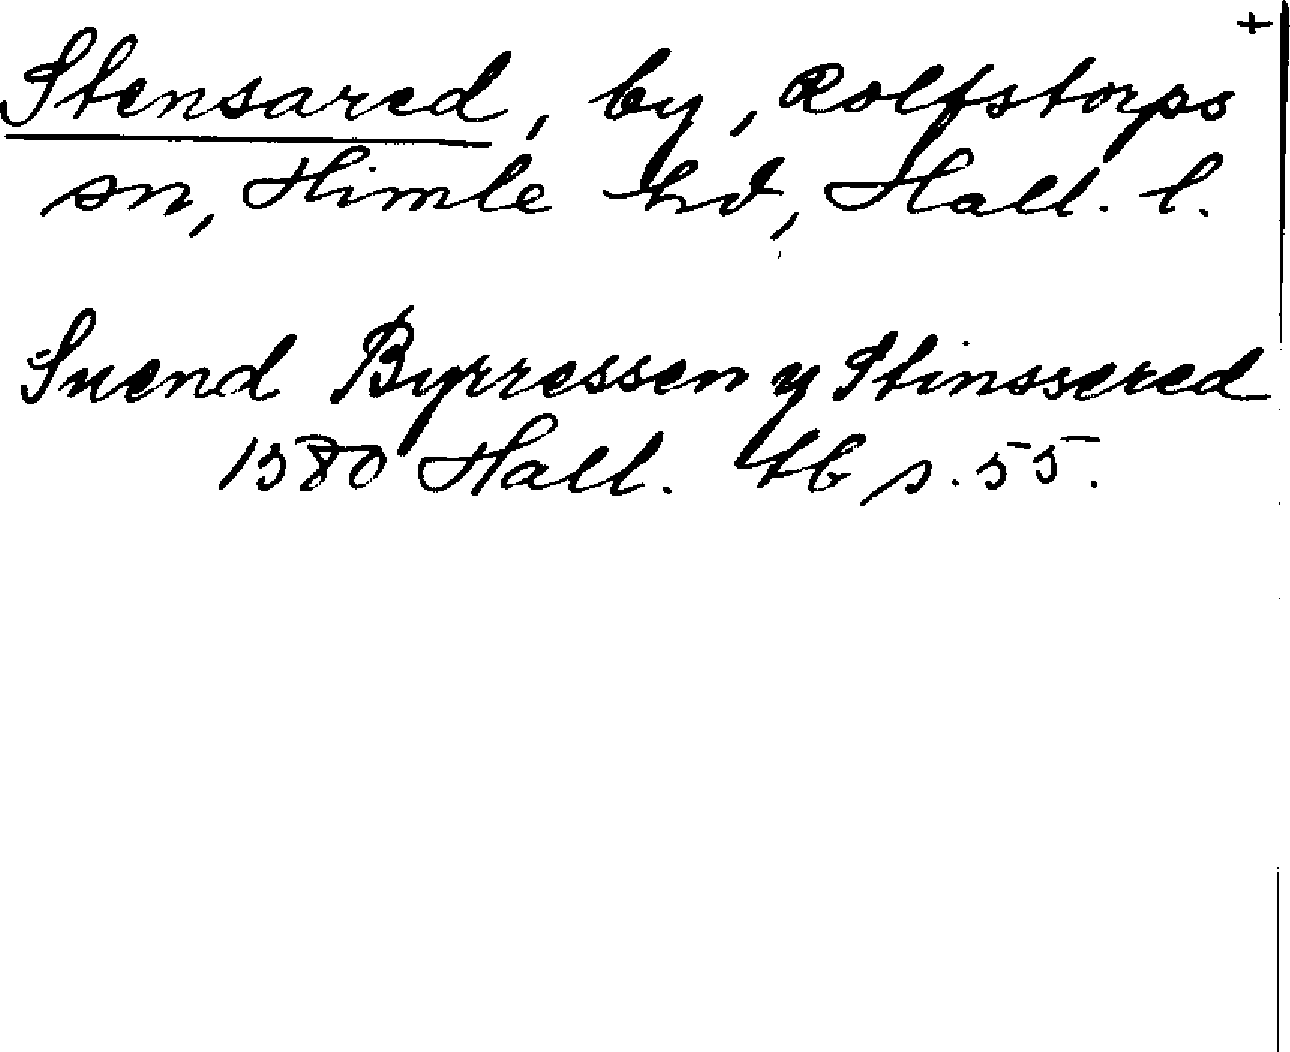 +
Stensared, by, Rolfstorps
sn, Himle hd, Hall. l.
Suend Byrressen y Stinssered
1580 Hall. tb s. 55.